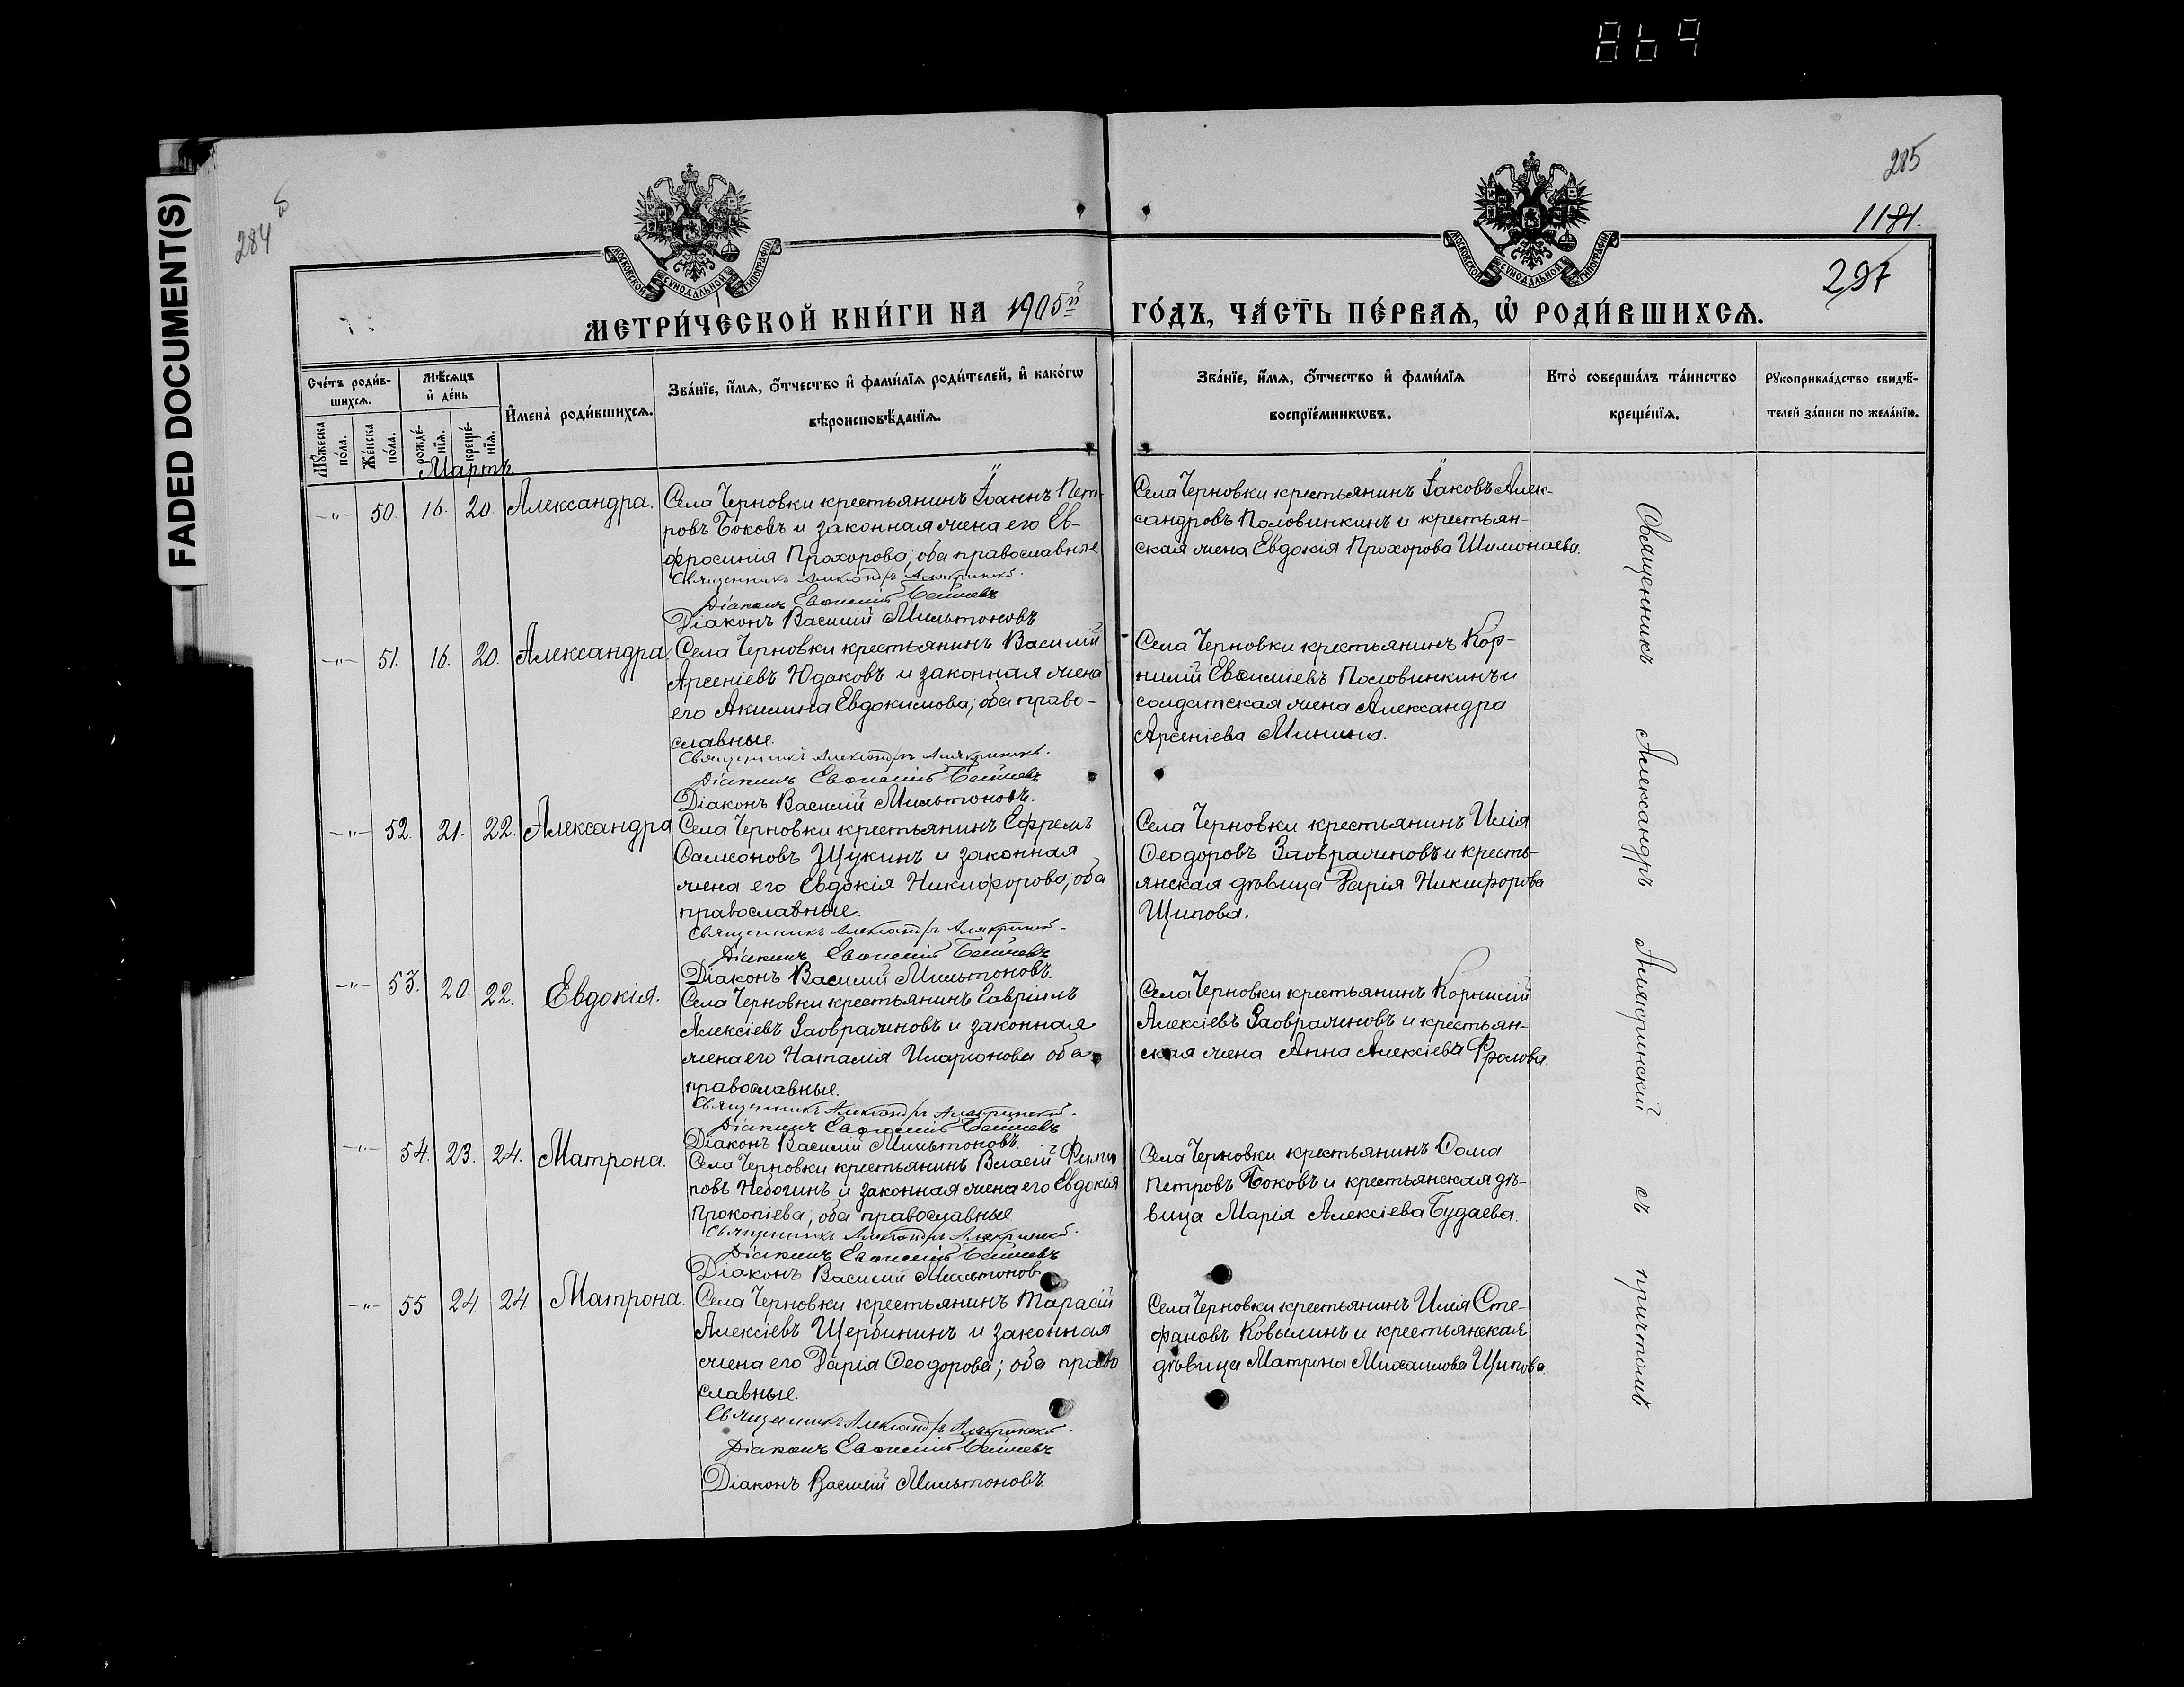 849
FADED DOCUMENT(S)
284
285
1181.
297
МОСКОВСКОЙ СѴНОДАЛЬНОЙ ТИПОГРАФІИ
МОСКОВСКОЙ СѴНОДАЛЬНОЙ ТИПОГРАФІИ
МЕТРИ́ЧЕСКОЙ КНИ́ГИ НА 1905й ГО́ДЪ, ЧА́СТЬ ПЕ́РВАѦ, Ѡ҆ РОДИ́ВШИХСѦ.
Сче́тъ роди́в-
шихсѧ.
Мꙋ́жеска по́ла.
Же́нска по́ла.
Мѣ́сѧцъ и҆ де́нь
рожде́-
нїѧ.
креще́-
нїѧ.
И҆мена̀ роди́вшихсѧ.
Зва́нїе, и҆́мѧ, ѻ҆́тчество и҆ фами́лїѧ роди́телей, и҆ како́гѡ
вѣроисповѣ́данїѧ.
Зва́нїе, и҆́мѧ, ѻ҆́тчество и҆ фами́лїѧ
воспрїе́мникѡвъ.
Кто̀ соверша́лъ та́инство
креще́нїѧ.
Рꙋкоприкла́дство свидѣ́-
телей за́писи по жела́нїю.
Мартъ.
-"- 50. 16. 20. Александра.
Села Черновки крестьянинъ Іоаннъ Пет-
ровъ Боковъ и законная жена его Ев-
фросинія Прохорова; оба православные
Священникъ Александръ Алякринскій.
Діаконъ Евѳимій Бѣляевъ
Діаконъ Василій Мильтоновъ
Села Черновки крестьянинъ Іаковъ Алек-
сандровъ Половинкинъ и крестьян-
ская жена Евдокія Прохорова Шимонаева.
-"- 51. 16. 20. Александра.
Села Черновки крестьянинъ Василій
Арсеніевъ Юдаковъ и законная жена
его Акилина Евдокимова; оба право-
славные.
Священникъ Александръ Алякринскій.
Діаконъ Евѳимій Бѣляевъ
Діаконъ Василій Мильтоновъ.
Села Черновки крестьянинъ Кор-
нилій Евѳиміевъ Половинкинъ и
солдатская жена Александра
Арсеніева Минина.
-"- 52. 21. 22. Александра
Села Черновки крестьянинъ Ефремъ
Самсоновъ Щукинъ и законная
жена его Евдокія Никифорова; оба
православные.
Священникъ Александръ Алякринскій.
Діаконъ Евѳимій Бѣляевъ
Діаконъ Василій Мильтоновъ.
Села Черновки крестьянинъ Илія
Ѳеодоровъ Заовражновъ и кресть-
янская дѣвица Дарія Никифорова
Щипова.
-"- 53. 20. 22. Евдокія.
Села Черновки крестьянинъ Гавріилъ
Алексіевъ Заовражновъ и законная
жена его Наталія Иларіонова оба
православные.
Священникъ Александръ Алякринскій.
Діаконъ Евѳимій Бѣляевъ
Діаконъ Василій Мильтоновъ.
Села Черновки крестьянинъ Корнилій
Алексіевъ Заовражновъ и крестьян-
ская жена Анна Алексіева Фролова.
-"- 54. 23. 24. Матрона.
Села Черновки крестьянинъ Власій Филип
повъ Небогинъ и законная жена его Евдокія
Прокопіева; оба православные
Священникъ Александръ Алякринскій.
Діаконъ Евѳимій Бѣляевъ
Діаконъ Василій Мильтоновъ
Села Черновки крестьянинъ Ѳома
Петровъ Боковъ и крестьянская дѣ-
вица Марія Алексіева Будаева.
-"- 55 24 24 Матрона.
Села Черновки крестьянинъ Тарасій
Алексіевъ Щербининъ и законная
жена его Дарія Ѳеодорова; оба право
славные.
Священникъ Александръ Алякринскій.
Діаконъ Евѳимій Бѣляевъ
Діаконъ Василій Мильтоновъ.
Села Черновки крестьянинъ Илія Сте-
фановъ Ковылинъ и крестьянская
дѣвица Матрона Михаилова Щипова.
Священникъ Александръ Алякринскій съ причтомъ